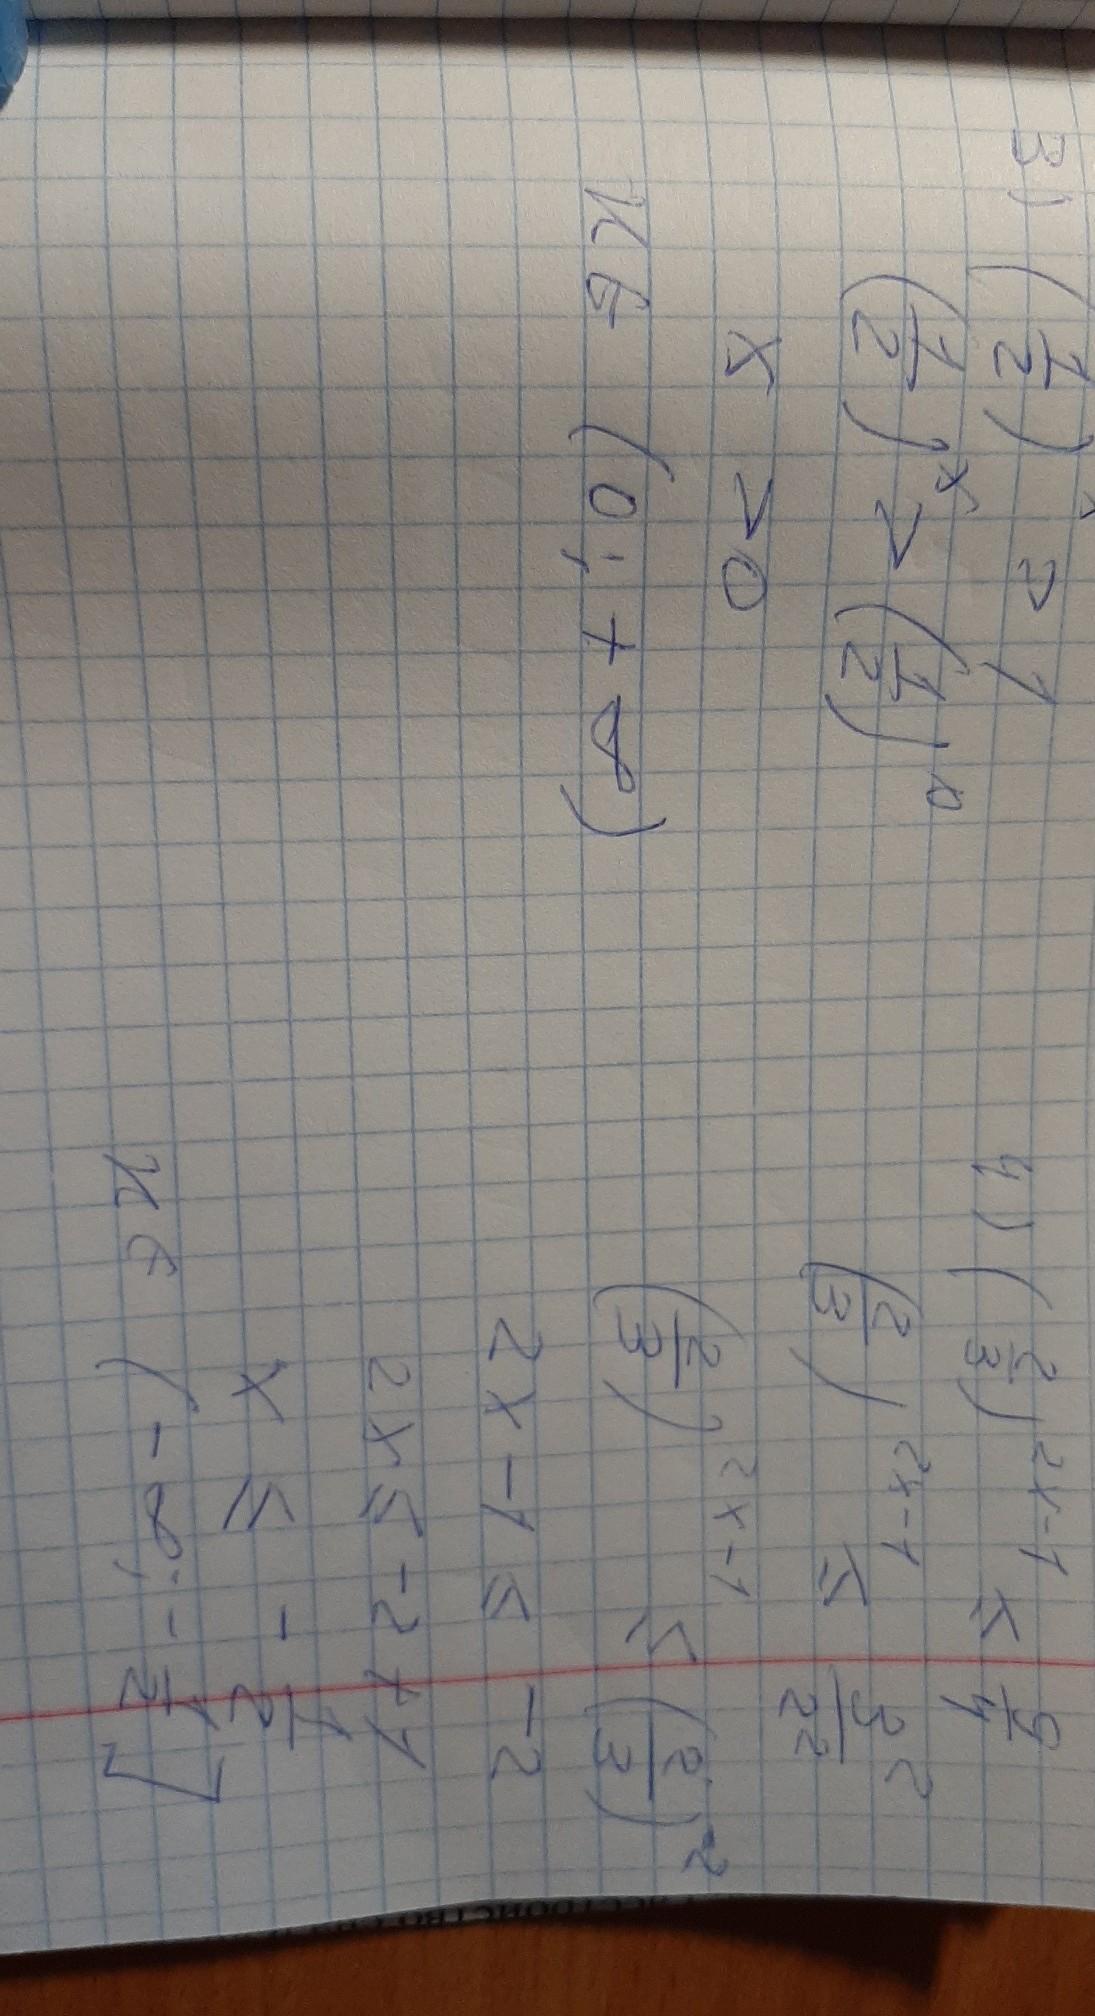 3) (1/2)^x > 1
(1/2)^x > (1/2)^0
x > 0
x ∈ (0; +∞)
4) (2/3)^2x-1 ≤ 9/4
(2/3)^2x-1 ≤ 3^2/2^2
(2/3)^2x-1 ≤ (2/3)^2
2x-1 ≤ -2
2x ≤ -2+1
x ≤ -1/2
x ∈ (-∞; -1/2]